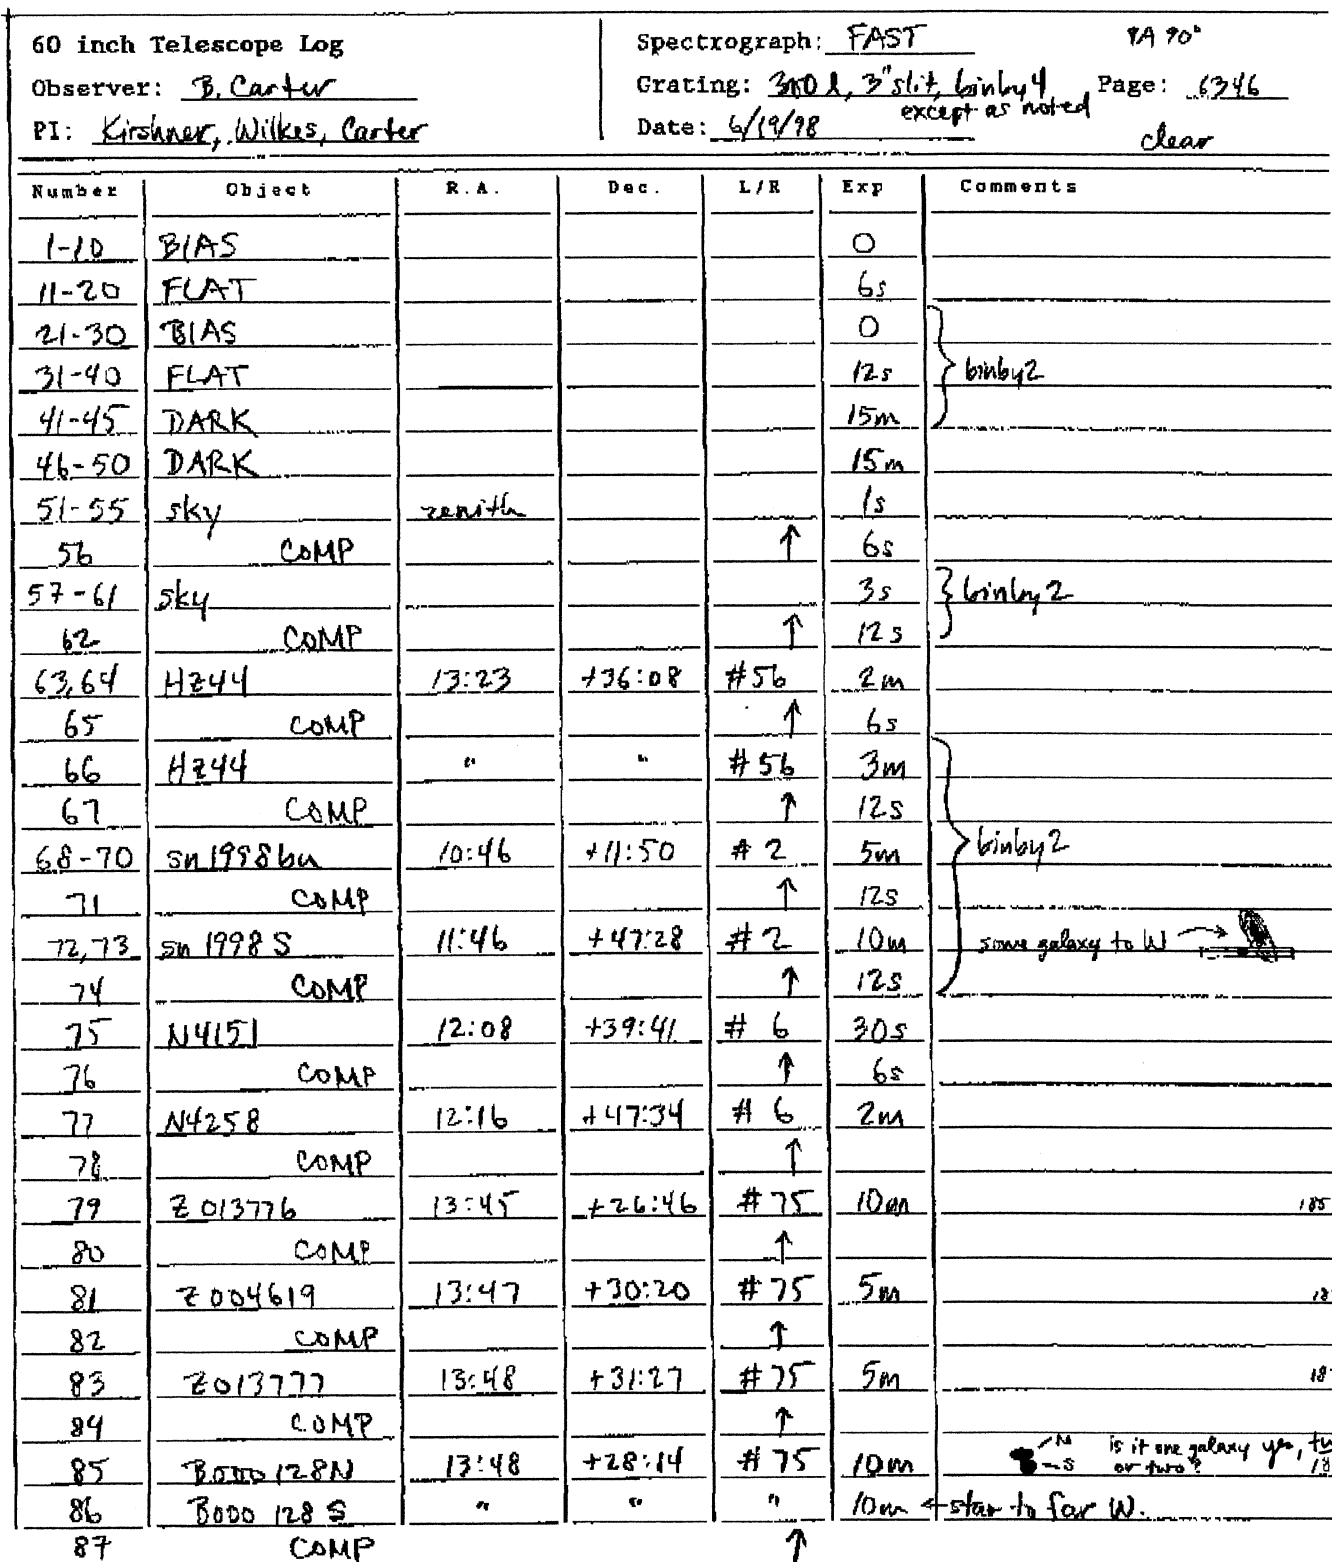 60 inch Telescope Log Spectrograph: FAST PA 90°
Observer: B. Carter Grating: 300 l, 3" slit, binby 4 Page: 6346
except as noted
PI: Kirshner, Wilkes, Carter Date: 6/19/98 clear
Number Object R.A. Dec. L/R Exp Comments
1-10 BIAS 0
11-20 FLAT 6s
21-30 BIAS 0
31-40 FLAT 12s binby2
41-45 DARK 15m
46-50 DARK 15m
51-55 sky zenith 1s
56 COMP ↑ 6s
57-61 sky 3s binby2
62 COMP ↑ 12s
63,64 HZ44 13:23 +36:08 #56 2m
65 COMP ↑ 6s
66 HZ44 " " #56 3m
67 COMP ↑ 12s
68-70 sn1998bu 10:46 +11:50 #2 5m binby2
71 COMP ↑ 12s
72,73 sn 1998S 11:46 +47:28 #2 10m some galaxy to W →
74 COMP ↑ 12s
75 N4151 12:08 +39:41 #6 30s
76 COMP ↑ 6s
77 N4258 12:16 +47:34 #6 2m
78 COMP ↑
79 Z013776 13:45 +26:46 #75 10m 185
80 COMP ↑
81 Z004619 13:47 +30:20 #75 5m 18
82 COMP ↑
83 Z013777 13:48 +31:27 #75 5m 18
84 COMP ↑
85 B000128N 13:48 +28:14 #75 10m N S is it one galaxy or two? yes, 18
86 B000128S " " " 10m ← star to far W.
87 COMP ↑